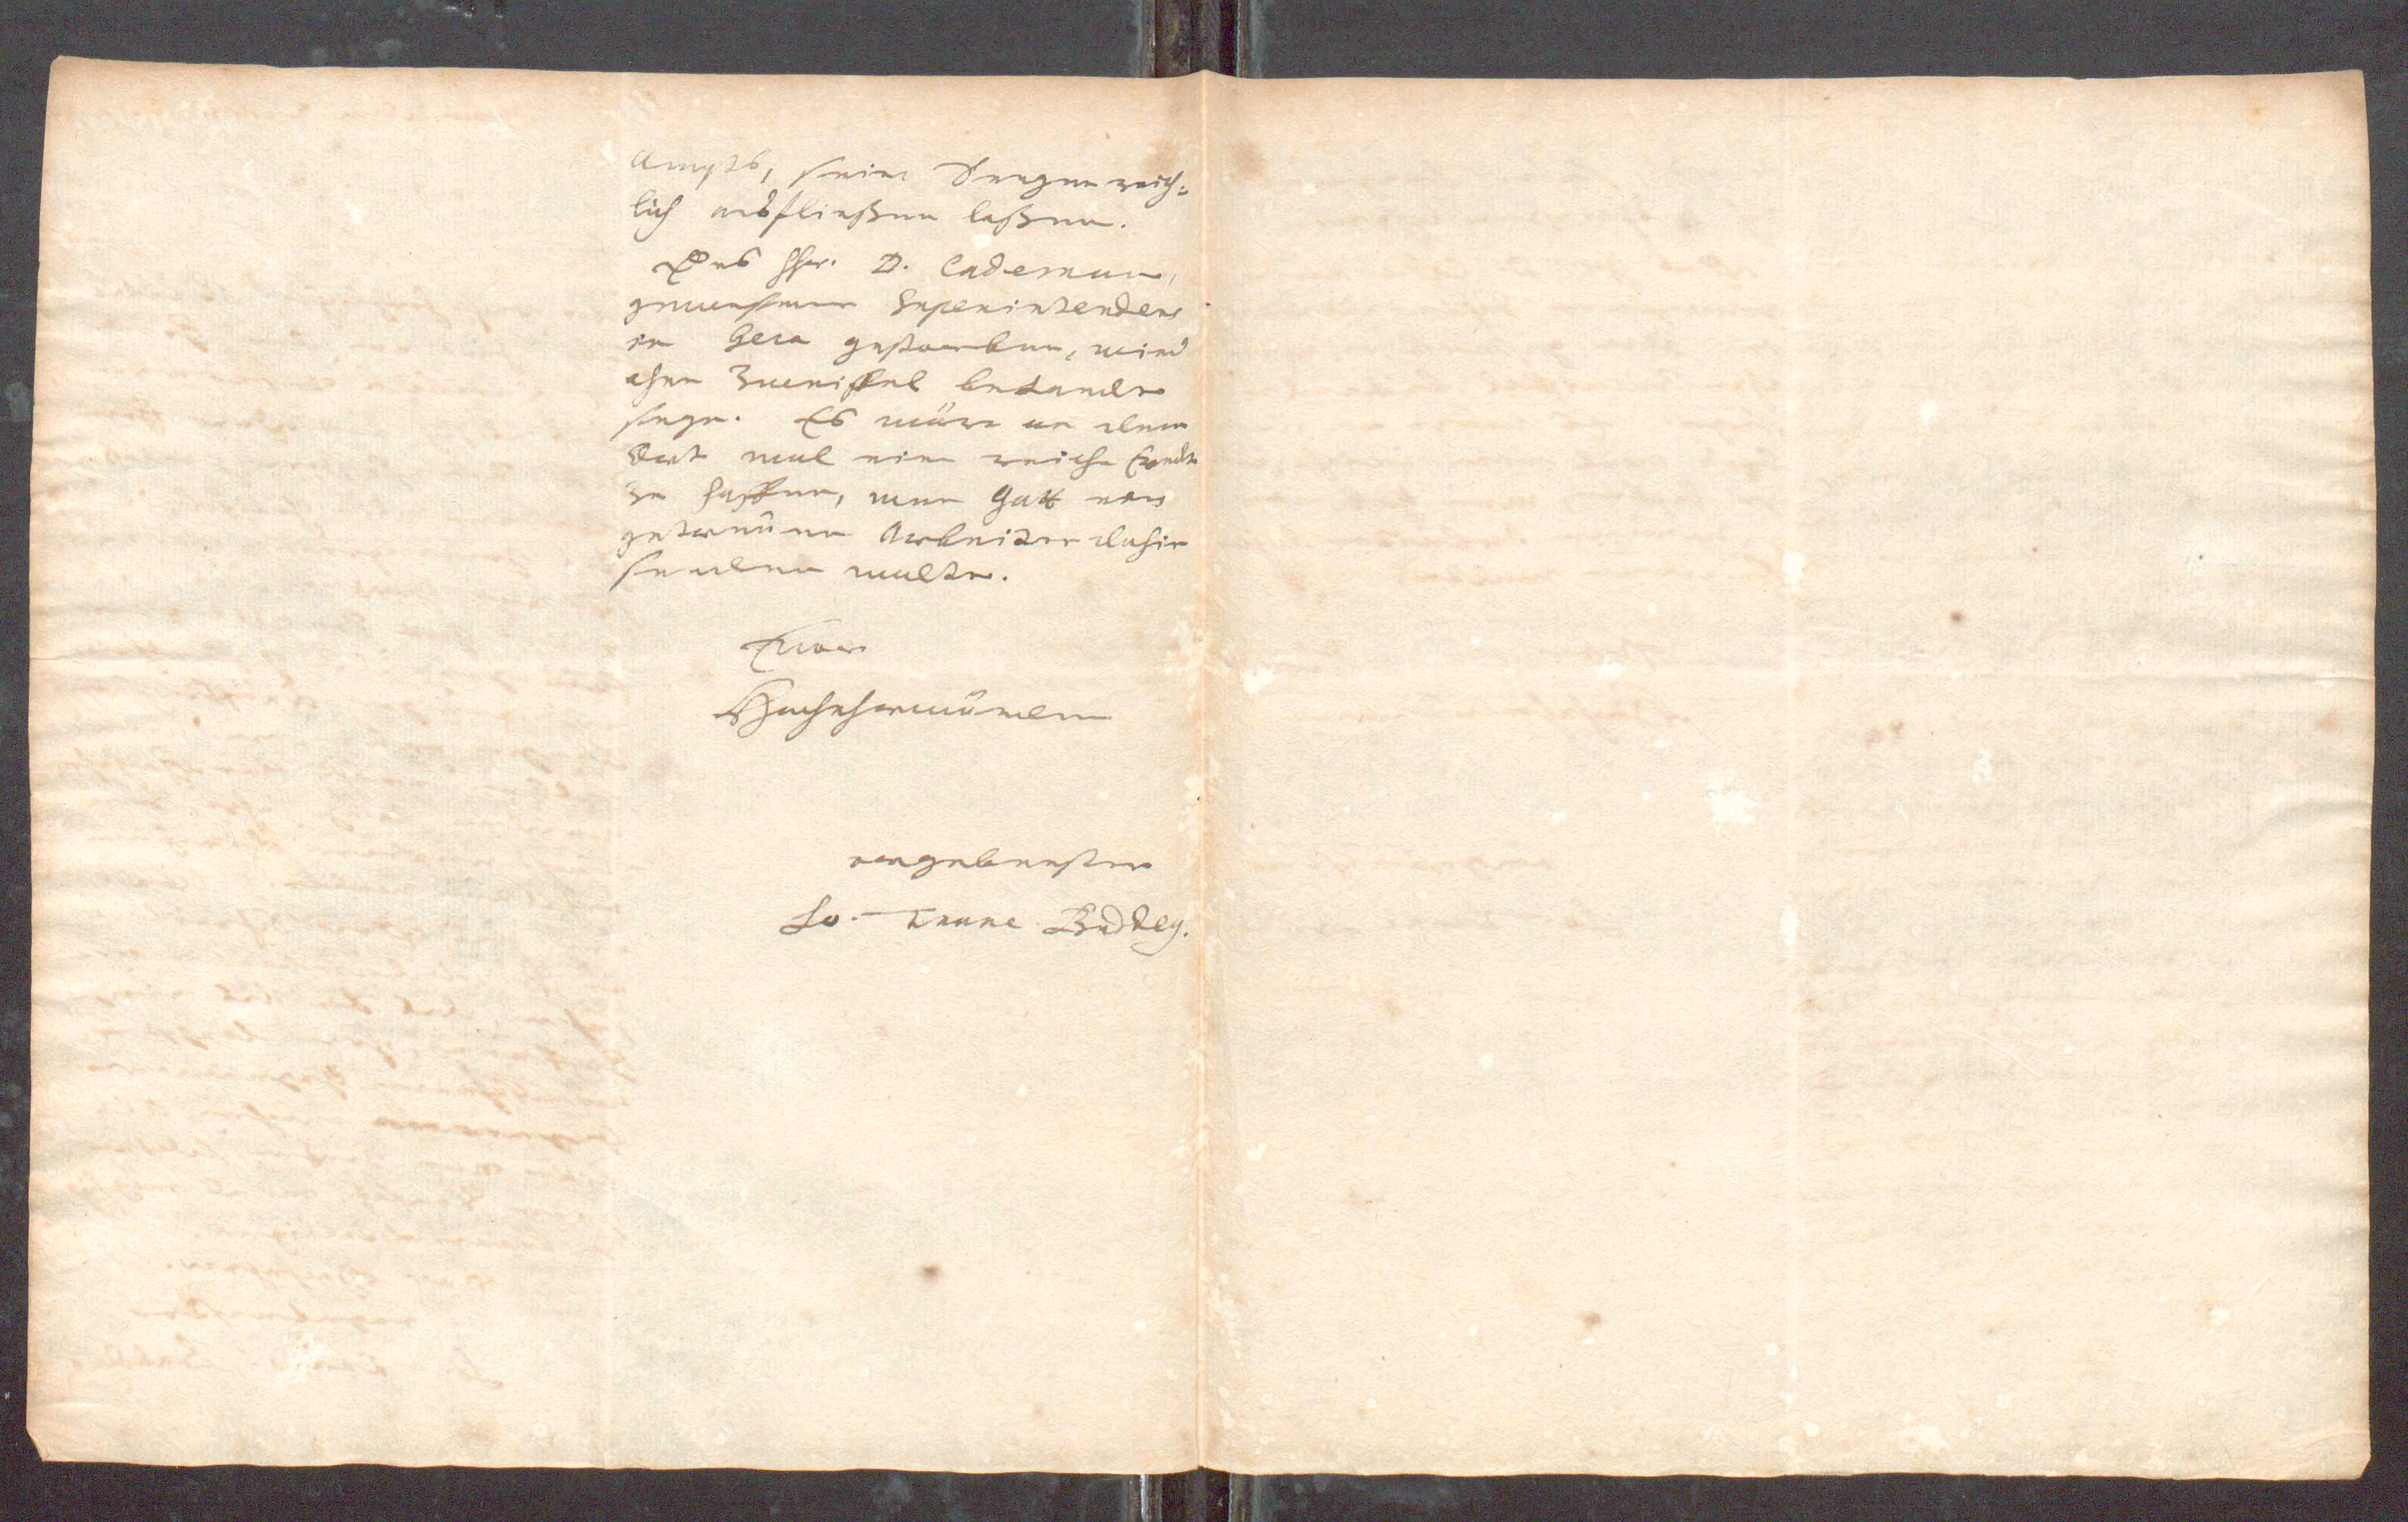 Ampts, seinen Seegen reich-
lich ausfließen laßen.
Das Hr. D. Cademan,
gewesener Superintendens
in Gera gestorben, wird
ohne Zweiffel bekandt
seyn. Es wäre an dem
Ort wol eine reiche Erndte
zu hoffen, wen Gott einen
getreuen Arbeiter dahin
senden wolte.
Euer
Hochehrwürden
ergebenster
Jo. Franc. Buddey.